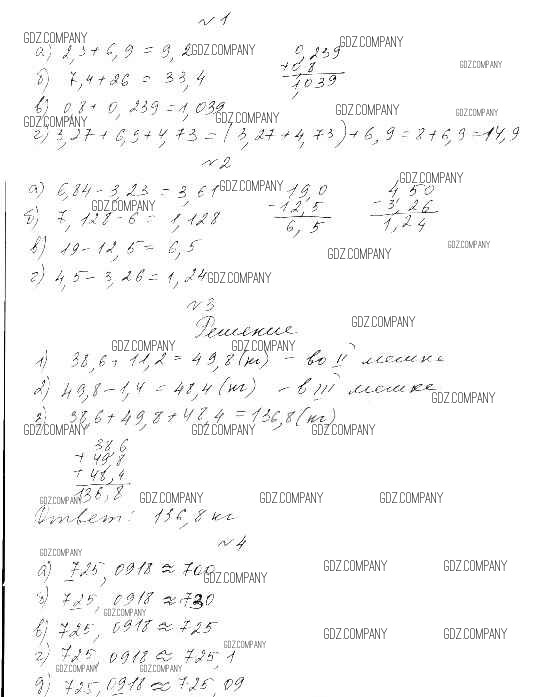 №1
GDZ.COMPANY
а) 2,3 + 6,9 = 9,2 GDZ.COMPANY 0,239 GDZ.COMPANY
б) 7,4 + 26 = 33,4 + 0,8 GDZ.COMPANY
1,039
в) 0,8 + 0,239 = 1,039 GDZ.COMPANY GDZ.COMPANY
GDZ.COMPANY GDZ.COMPANY
г) 3,27 + 6,9 + 4,73 = (3,27 + 4,73) + 6,9 = 8 + 6,9 = 14,9
№2
а) 6,84 - 3,23 = 3,61 GDZ.COMPANY 19,0 4,50 GDZ.COMPANY
б) 7,128 - 6 = 1,128 GDZ.COMPANY - 12,5 - 3,26
6,5 1,24
в) 19 - 12,5 = 6,5 GDZ.COMPANY GDZ.COMPANY
г) 4,5 - 3,26 = 1,24 GDZ.COMPANY
№3
Решение GDZ.COMPANY
GDZ.COMPANY GDZ.COMPANY
1) 38,6 + 11,2 = 49,8 (кг) - во II мешке
2) 49,8 - 1,4 = 48,4 (кг) - в III мешке
GDZ.COMPANY
3) 38,6 + 49,8 + 48,4 = 136,8 (кг)
GDZ.COMPANY GDZ.COMPANY GDZ.COMPANY
38,6
+ 49,8
+ 48,4
136,8
GDZ.COMPANY GDZ.COMPANY GDZ.COMPANY GDZ.COMPANY
Ответ: 136,8 кг
№4
GDZ.COMPANY
а) 725,0918 ≈ 700 GDZ.COMPANY GDZ.COMPANY GDZ.COMPANY
б) 725,0918 ≈ 730
GDZ.COMPANY
в) 725,0918 ≈ 725 GDZ.COMPANY GDZ.COMPANY
GDZ.COMPANY
г) 725,0918 ≈ 725,1
GDZ.COMPANY GDZ.COMPANY
д) 725,0918 ≈ 725,09